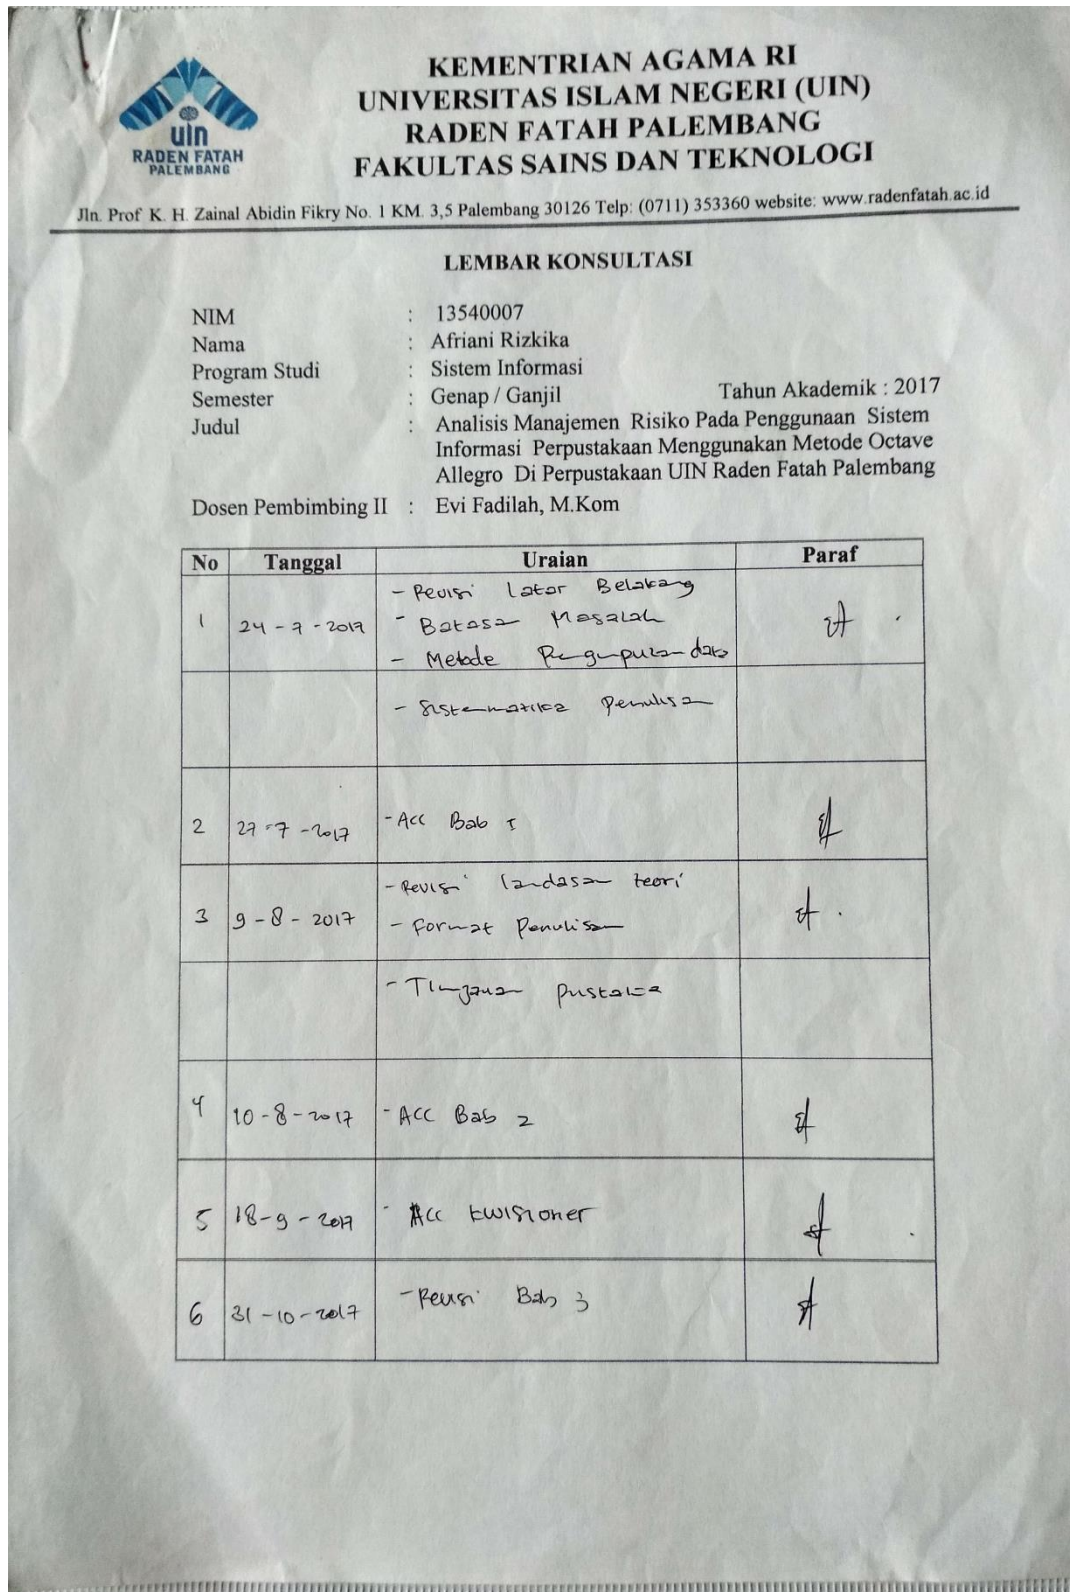 KEMENTRIAN AGAMA RI
UNIVERSITAS ISLAM NEGERI (UIN)
RADEN FATAH PALEMBANG
FAKULTAS SAINS DAN TEKNOLOGI
uin
RADEN FATAH
PALEMBANG
Jln. Prof K. H. Zainal Abidin Fikry No. 1 KM. 3,5 Palembang 30126 Telp: (0711) 353360 website: www.radenfatah.ac.id
LEMBAR KONSULTASI
NIM : 13540007
Nama : Afriani Rizkika
Program Studi : Sistem Informasi
Semester : Genap / Ganjil Tahun Akademik : 2017
Judul : Analisis Manajemen Risiko Pada Penggunaan Sistem
Informasi Perpustakaan Menggunakan Metode Octave
Allegro Di Perpustakaan UIN Raden Fatah Palembang
Dosen Pembimbing II : Evi Fadilah, M.Kom
No Tanggal Uraian Paraf
- Revisi Latar Belakang
1 24 - 7 - 2017 - Batasan Masalah
- Metode Pengumpulan data
- Sistematika Penulisan
2 27 - 7 - 2017 - Acc Bab I
- Revisi landasan teori
3 9 - 8 - 2017 - Format Penulisan
- Tinjauan Pustaka
4 10 - 8 - 2017 - ACC Bab 2
5 18 - 9 - 2017 - Acc kwisioner
6 31 - 10 - 2017 - Revisi Bab 3